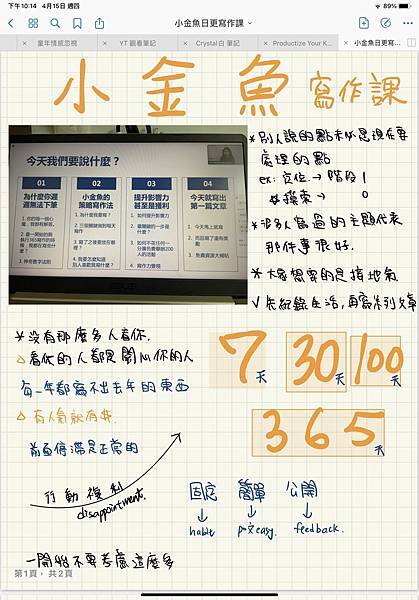 下午10:14 4月15日 週四
小金魚日更寫作課
89%
童年情感忽視
YT 觀看筆記
Crystal白 筆記
Productize Your K...
小金魚日更寫...
小金魚 寫作課
今天我們要說什麼？
01
為什麼你遲遲無法下筆
02
小金魚的策略寫作法
03
提升影響力甚至是獲利
04
今天就寫出第一篇文章
1. 如何提升影響力
1. 今天馬上就寫
3. 神奇數字法則
3. 寫作力變現
*別人說的點未必是現在要
處理的點
ex: 定位 → 階段1
探索 → 0
*很多人寫過的主題代表
那件事很好.
*大家想要的是接地氣
√先紀錄生活,再寫系列文章
*沒有那麼多人看你.
△看你的人都是關心你的人
每一年都寫不出去年的東西
△有人氣就有#.
前面停滯是正常的
7天 30天 100天
365天
行動複利
disappointment.
固定 簡單 公開
↓ ↓ ↓
habit easy. feedback.
一開始不要考慮這麼多
第1頁，共2頁